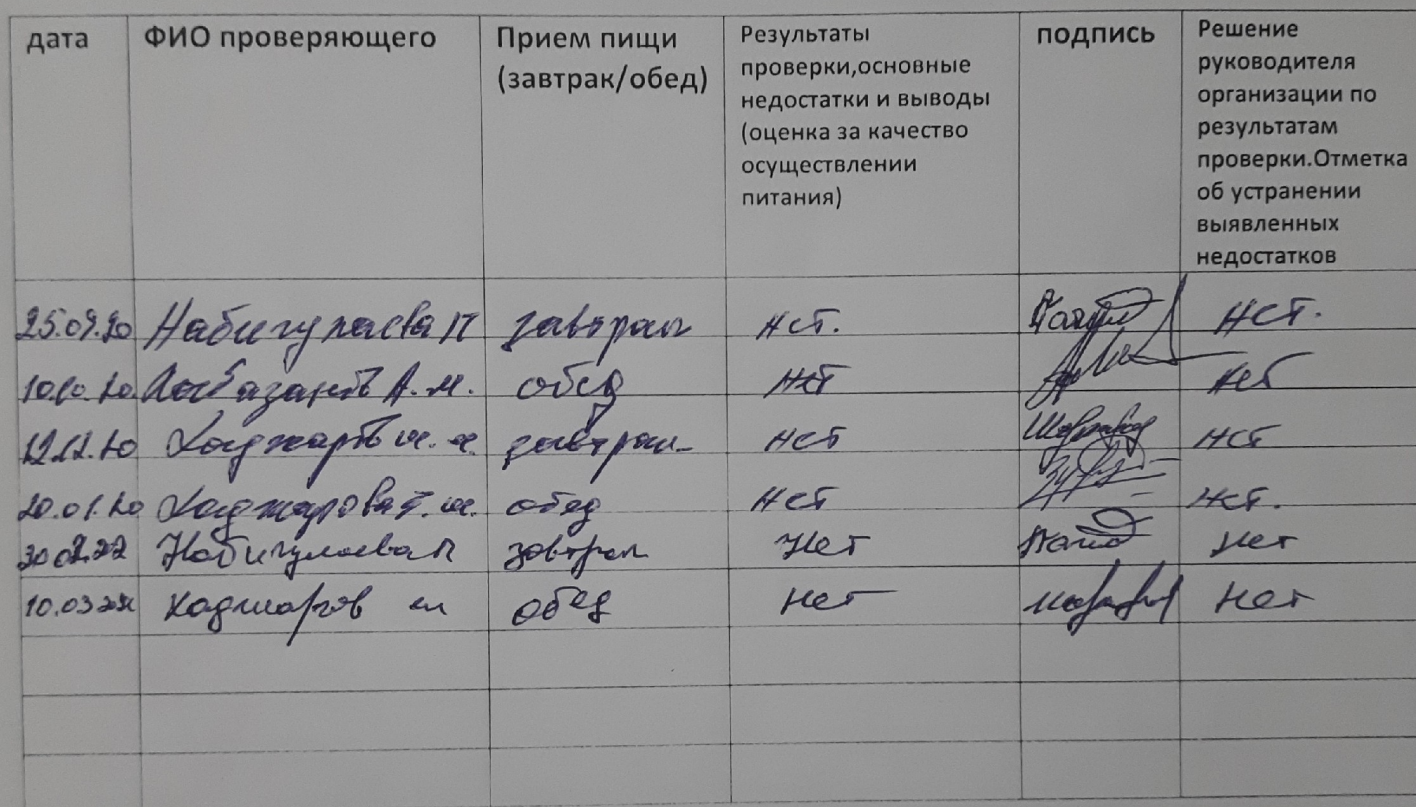 дата ФИО проверяющего Прием пищи (завтрак/обед) Результаты проверки,основные недостатки и выводы (оценка за качество осуществлении питания) подпись Решение руководителя организации по результатам проверки.Отметка об устранении выявленных недостатков
25.09.20 Набигулаева П завтрак нет. нет.
10.10.20 А.м. обед нет нет
12.12.20 завтрак нет нет
20.01.20 обед нет нет.
Набигулаева П завтрак Нет Нет
10.03.22 обед Нет Нет